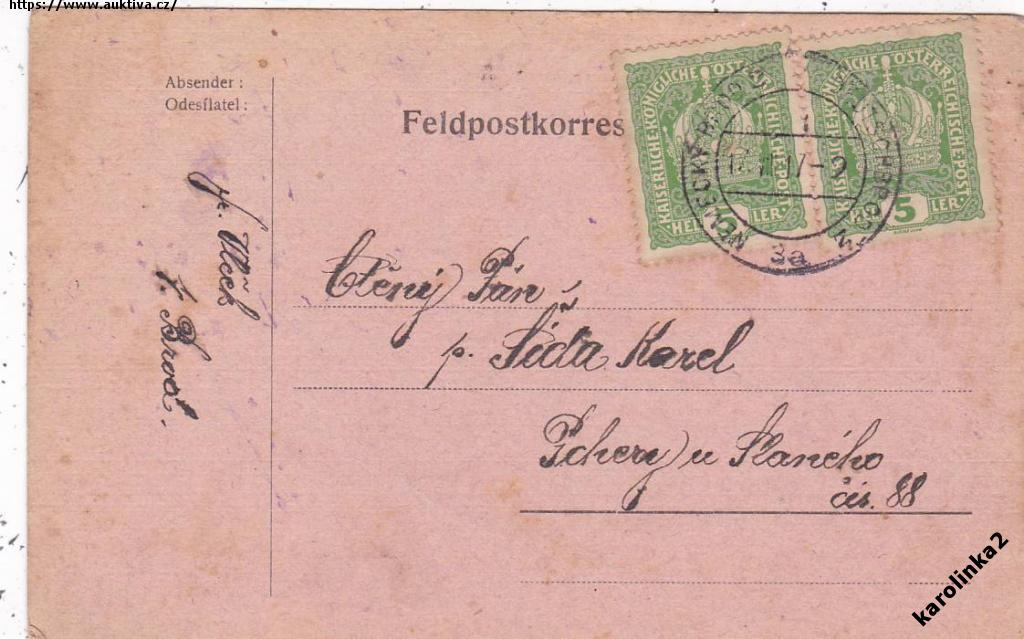 https://www.auktiva.cz/
Absender :
Odesílatel :
Feldpostkorres
KAISERLICHE KÖNIGLICHE ÖSTERREICHISCHE POST
5 HELLER
KAISERLICHE KÖNIGLICHE ÖSTERREICHISCHE POST
5 HELLER
3a
Ctěný Pán
p. Šída Karel
Pchery u Slaného
čís. 88
Brod.
karolinka2